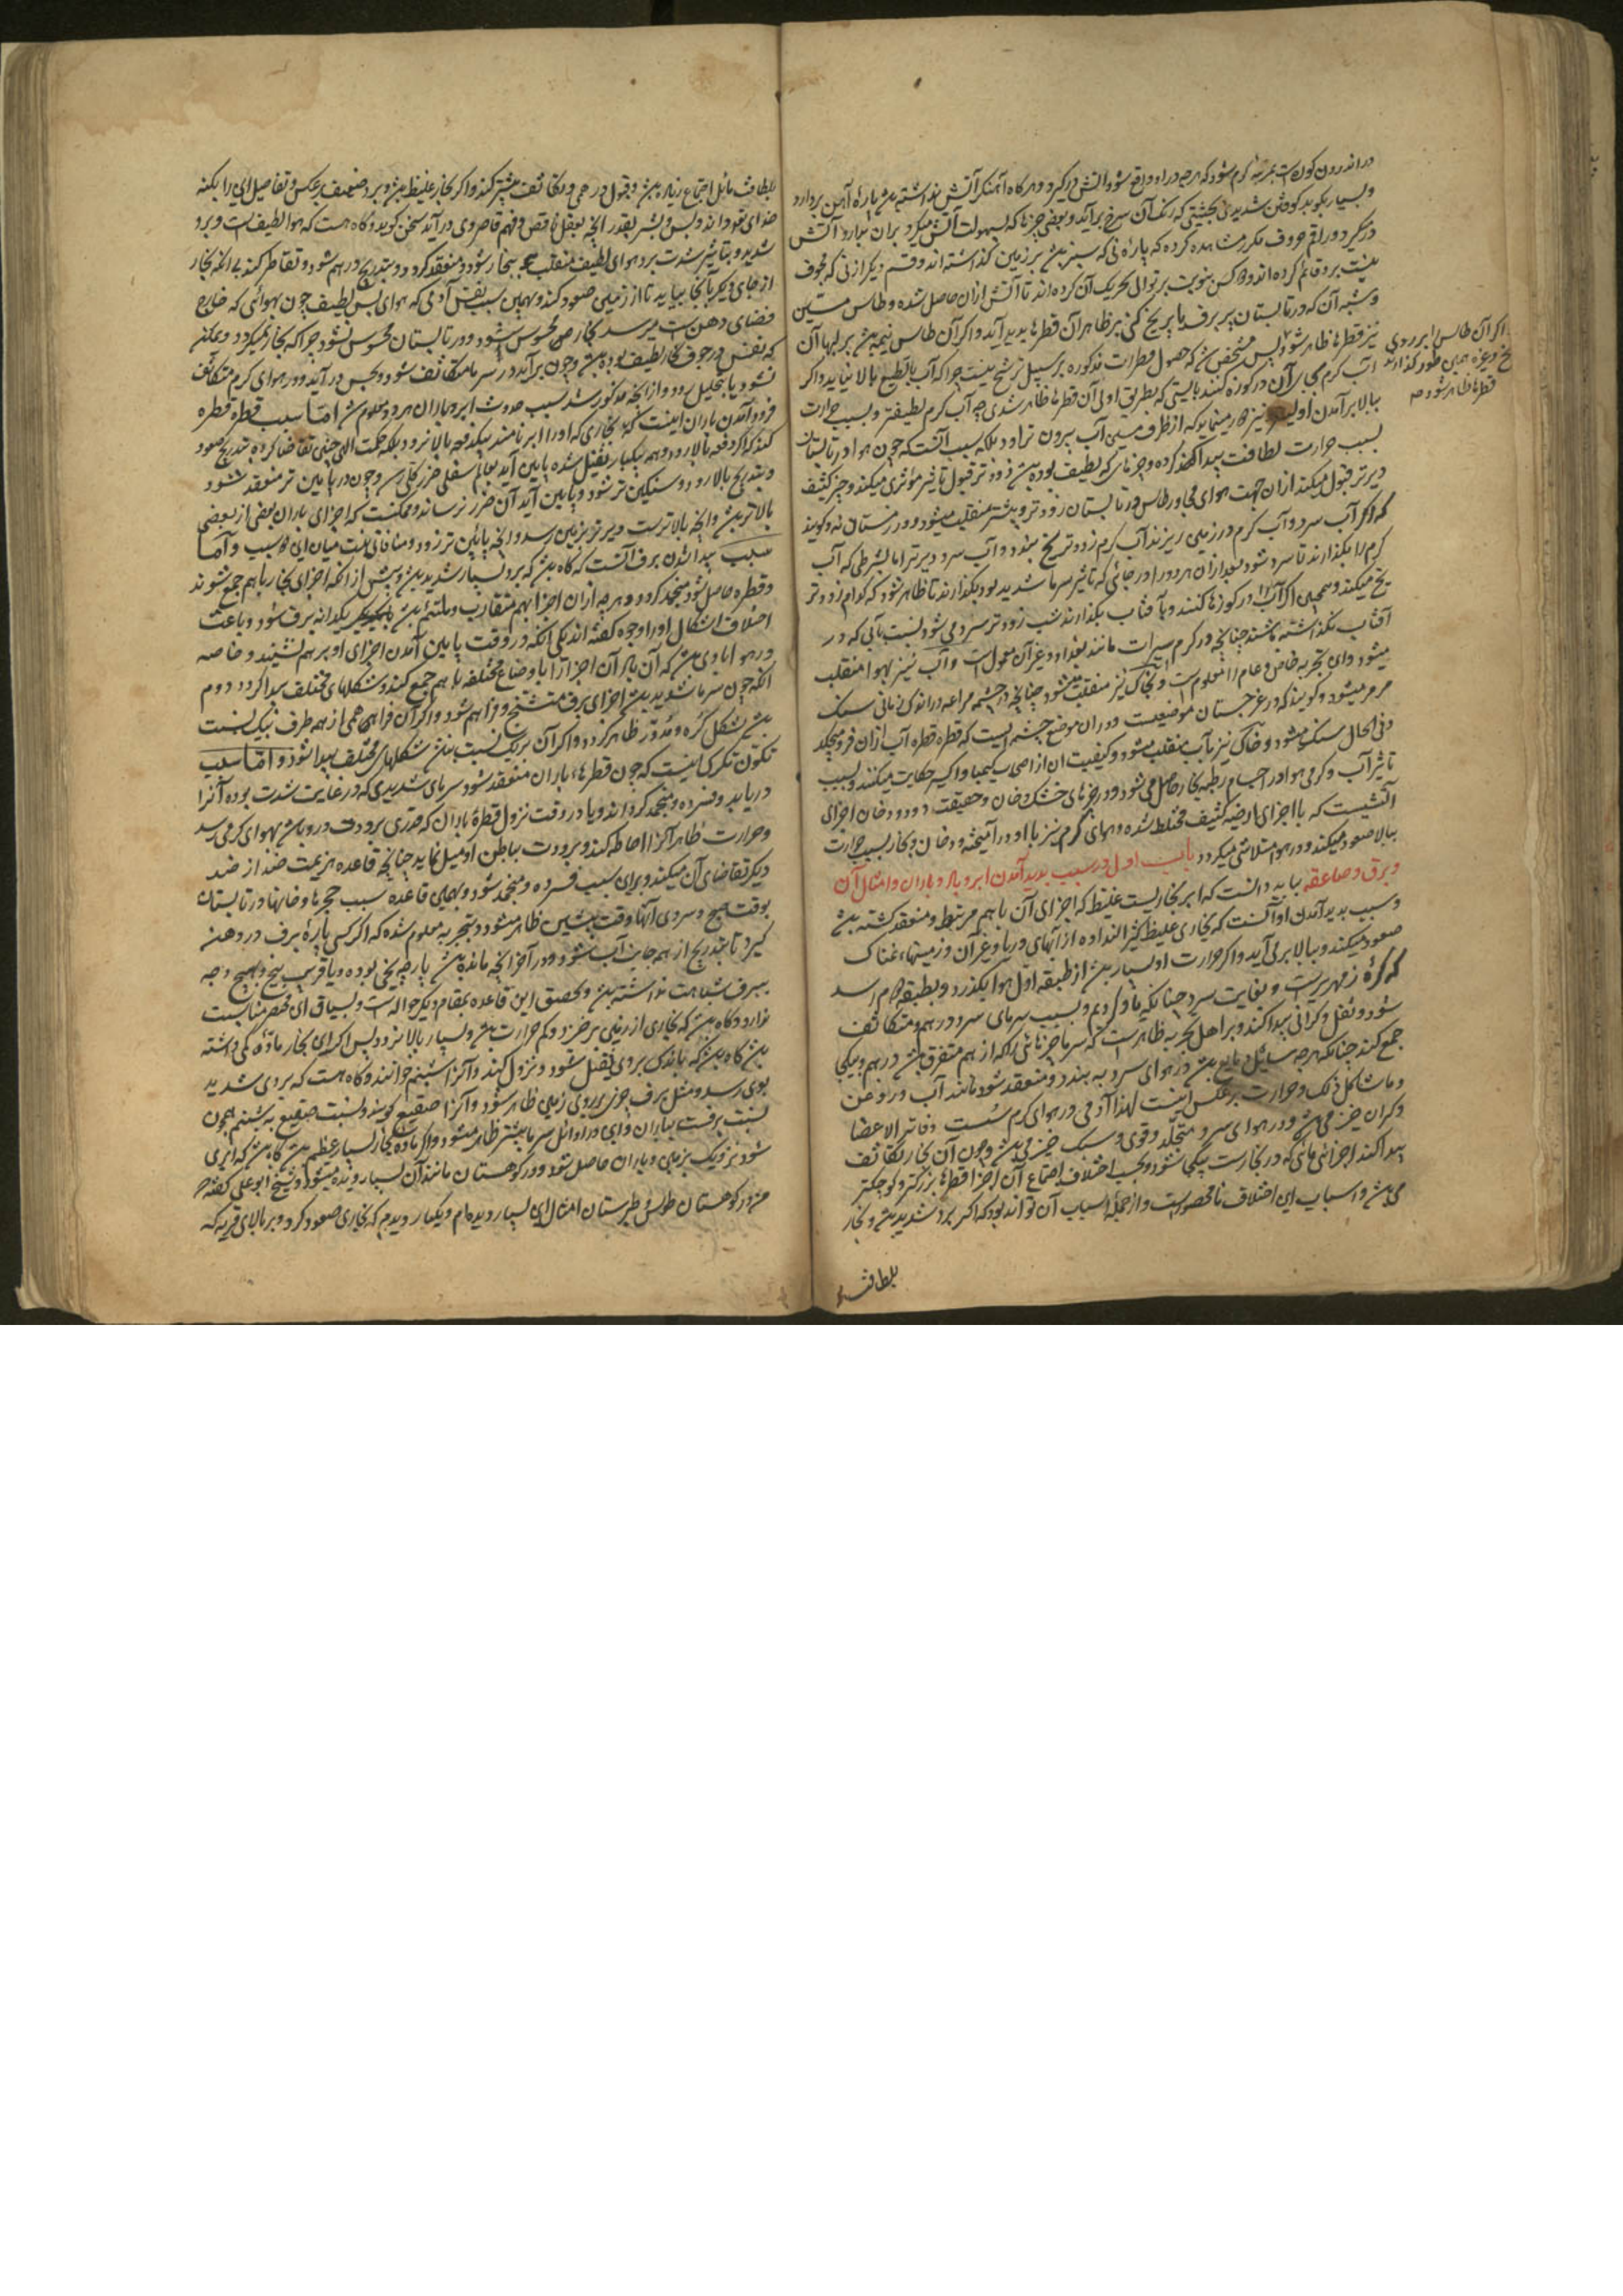 در اندرون کوره است بمرتبه گرم شود که هرچه در او واقع شود آتش درگیرد و هرگاه آهنگر آتش نداشته باشد پارهٔ آهن بردارد
و بسیار بکوبد کوفتن شدیدی بحیثیتی که رنگ آن سرخ برآید و بعضی چیزها که بسهولت آتش میگیرد بران بدارد آتش
درمیگیرد و راقم حروف مکرر مشاهده کرده که پارهٔ نی که سبز باشد بر زمین گذاشته اند و قسم دیگر از نی که مجوف
نیست برو قائم کرده اند و دو کس بنوبت بر توالی تحریک آن کرده اند تا آتش ازان حاصل شده و طاس مسین
و شبه آن که در تابستان پر برف یا پر یخ کنی بر ظاهر آن قطرها پدید آید و اگر آن طاس نیمه باشد بر لبهای آن
نیز قطرها ظاهر شود پس مشخص شد که حصول قطرات مذکوره بر سبیل ترشح نیست چرا که آب بالطبع بالا نیاید و اگر
آب گرم بجای آن در کوزه کنند بایستی که بطریق اولی آن قطرها ظاهر شدی چه آب گرم لطیفتر و بسبب حرارت
اگر آن طاس را بر روی
یخ و غیره همین طور گذارند
قطرها ظاهر شود
ببالا برآمدن اولی
بسبب حرارت لطافت پیدا کرده و چیزهای که لطیف بوده باشد زودتر قبول تاثیر مؤثری میکند و چیز کثیف
دیرتر قبول میکند ازان جهت هوای مجاور طاس در تابستان زودتر و بیشتر منقلب میشود و در زمستان نه و گویند
که اگر آب سرد و آب گرم در زمینی ریزند آب گرم زودتر یخ بندد و آب سرد دیرتر اما بشرطی که آب
گرم را بگذارند تا سرد شود بعد ازان هر دو را در جائی که تاثیر سرما شدید بود بگذارند تا ظاهر شود که کدام زودتر
یخ میکند و همچنین اگر آب را در کوزها کنند و بآفتاب بگذارند شب زودتر سرد می شود نسبت بآبی که در
آفتاب نگذاشته باشند چنانچه در گرم سیرات مانند بغداد و غیر آن معمول است و آب نیز بهوا منقلب
میشود و این تجربه خاص و عام را معلوم است و بخاک نیز منقلب میشود چنانچه در چشمه مراغه در اندک زمانی سنگ
مرمر میشود و گویند که در غرجستان موضعیست و دران موضع چشمه ایست که قطره قطره آب ازان فرو میچکد
و فی الحال سنگ میشود و خاک نیز بآب منقلب میشود و کیفیت ان از اصحاب کیمیا و اکسیر حکایت میکنند و بسبب
تاثیر آب و گرمی هوا در اجسام رطبه بخار حاصل می شود و در چیزهای خشک دخان و حقیقت دود و دخان اجزای
آتشیست که با اجزای ارضیه کثیف مختلط شده و هوای گرم نیز با او درآمیخته و دخان و بخار بسبب حرارت
ببالا صعود میکند و در هوا متلاشی میگردد باب اول در سبب پدید آمدن ابر و باد و باران و امثال آن
و برق و صاعقه بباید دانست که ابر بخاریست غلیظ که اجزای آن باهم مرتبط و منعقد گشته باشد
و سبب پدید آمدن او آنست که بخاری غلیظ کثیر النداوه از آبهای دریا و غیر آن و زمینهای نمناک
صعود میکند و ببالا برمی آید و اگر حرارت او بسیار باشد از طبقه اول هوا بگذرد و بطبقه دوم رسد
که کرهٔ زمهریرست و بغایت سرد چنانکه یاد کردیم و بسبب سرمای سرد درهم و متکاثف
شود و ثقل و گرانی پیدا کند و بر اهل تجربه ظاهرست که سرما چیزهائی را که از هم متفرق باشد درهم و بیکی
جمع کند چنانکه هرچه سائل و مایع باشد در هوای سرد به بندد و منعقد شود مانند آب و روغن
و ماشاکل ذلک و حرارت برعکس اینست لهذا آدمی در هوای گرم سست و فاتر الاعضا
و گران خیز می باشد و در هوای سرد متجلد و قوی و سبک خیز می باشد و چون آن بخار تکاثف
پیدا کند اجزائی هائی که در بخارست بیکی شود و بحسب اختلاف اجتماع آن اجزا قطرها بزرگتر و کوچکتر
می باشد و اسباب این اختلاف نامحصورست و از جمله اسباب آن تواند بود که اگر برد شدید باشد و بخار
بلطافت
بلطافت مائل اجتماع زیاده باشد و قبول درهمی و تکاثف بیشتر کند و اگر بخار غلیظ باشد و برد ضعیف برعکس و تفاصیل این را بکنه
خدای تعو داند و بس و بشر بقدر آنچه بعقل ناقص و فهم قاصر وی درآید سخن گوید و گاه هست که هوا لطیف است و برد
شدید و بتاثیر شدت برد هوای لطیف منقلب ببخار شود و منعقد گردد و بتدریج درهم شود و تقاطر کند بی آنکه بخار
از جای دیگر بآنجا بیاید تا از زمین صعود کند و بهمین سبب نفس آدمی که هوای بس لطیف چون بهوائی که خارج
فضای دهن است میرسد بخار محسوس شود و در تابستان محسوس نشود چرا که بخار نمیگردد و ممکنه
که نفس در جوف بخار لطیف بوده باشد و چون برآید در سرما متکاثف شود و بحس درآید و در هوای گرم متکاثف
نشود یا بتحلیل رود و از آنچه مذکور شد سبب حدوث ابر و باران هر دو معلوم شد اما سبب قطره قطره
فرود آمدن باران اینست که بخاری که او را ابر نامند بیکدفعه بالا نرود بلکه حکمت الهی چنین تقاضا کرده بتدریج صعود
کند که اگر دفعه بالا رود و همه بیکبار ثقیل شده پایین آید بعالم سفلی ضرر کلی رسد و چون در پایین تر منعقد شود
و بتدریج بالا رود و سنگین تر شود و پایین آید آن ضرر نرساند و ممکنست که اجزای باران بعضی از بعضی
بالاتر باشد و آنچه بالاترست دیرتر بزمین رسد و آنچه پائین تر زودتر و منافاتی نیست میان این دو سبب و اما
سبب پیدا شدن برف آنست که گاه باشد که برد بسیار شدید باشد و پیش از انکه اجزای بخار باهم جمع شوند
و قطره حاصل شود منجمد گردد و هرچه ازان اجزا بهم متقارب و ملتئم باشد بایکدیگر یکدانه برف شود و باعث
اختلاف اشکال او را وجوه گفته اند یکی آنکه در وقت پایین آمدن اجزای او برهم نشیند و خاصه
در هوا بادی باشد که آن باد آن اجزا را باوضاع مختلفه باهم جمع کند و شکلهای مختلف پیدا کردد دوم
آنکه چون سرما شدید باشد اجزای برف متشنج و فراهم شود و اگر آن فراهمی از همه طرف بیک نسبت
باشد شکل کره و مدور ظاهر گردد و اگر آن بریک نسبت نباشد شکلهای مختلف پیدا شود و اما سبب
تکون تگرگ اینست که چون قطرهای باران منعقد شود سرمای شدیدی که در غایت شدت بوده آنرا
دریابد و فسرده و منجمد گرداند و یا در وقت نزول قطرهٔ باران که قدری برودت درو باشد بهوای گرمی رسد
و حرارت ظاهر آنرا احاطه کند و برودت بباطن او میل نماید چنانچه قاعده هزیمت ضد از ضد
دیگر تقاضای آن میکند و برای سبب فسرده و منجمد شود و بهمین قاعده سبب حجرها و خانها در تابستان
بوقت صبح و سردی آنها وقت پیشین ظاهر میشود و بتجربه معلوم شده که اگر کسی پارهٔ برف در دهن
گیرد تا بتدریج از همه جانب آب شود و در آخر آنچه مانده باشد پارچه یخی بوده و یا قریب بیخ و بهیچ وجه
ببرف شباهت نداشته باشد و تحقیق این قاعده بمقام دیگر حواله است و بسیاق این مختصر مناسبت
ندارد و گاه باشد که بخاری از زمین برخیزد و کم حرارت باشد و بسیار بالا نرود پس اگر این بخار ماده کمی داشته
باشد گاه باشد که باندک بردی ثقیل شود و نزول کند و آنرا شبنم خوانند و گاه هست که بردی شدید
بوی رسد و مثل برف چیزی بر روی زمین ظاهر شود و آنرا صقیع گویند و نسبت صقیع به شبنم همچون
نسبت برفست بباران و این در اوائل سرما بیشتر ظاهر میشود و اگر ماده بخار بسیار عظیم باشد گاه باشد که ابری
شود نزدیک بزمین و باران حاصل شود و در کوهستان مانند آن بسیار دیده میشود و شیخ ابو علی گفته
من در کوهستان طوس و طبرستان امثال این بسیار دیده ام و یکبار دیدم که بخاری صعود کرد و بر بالای قریه که